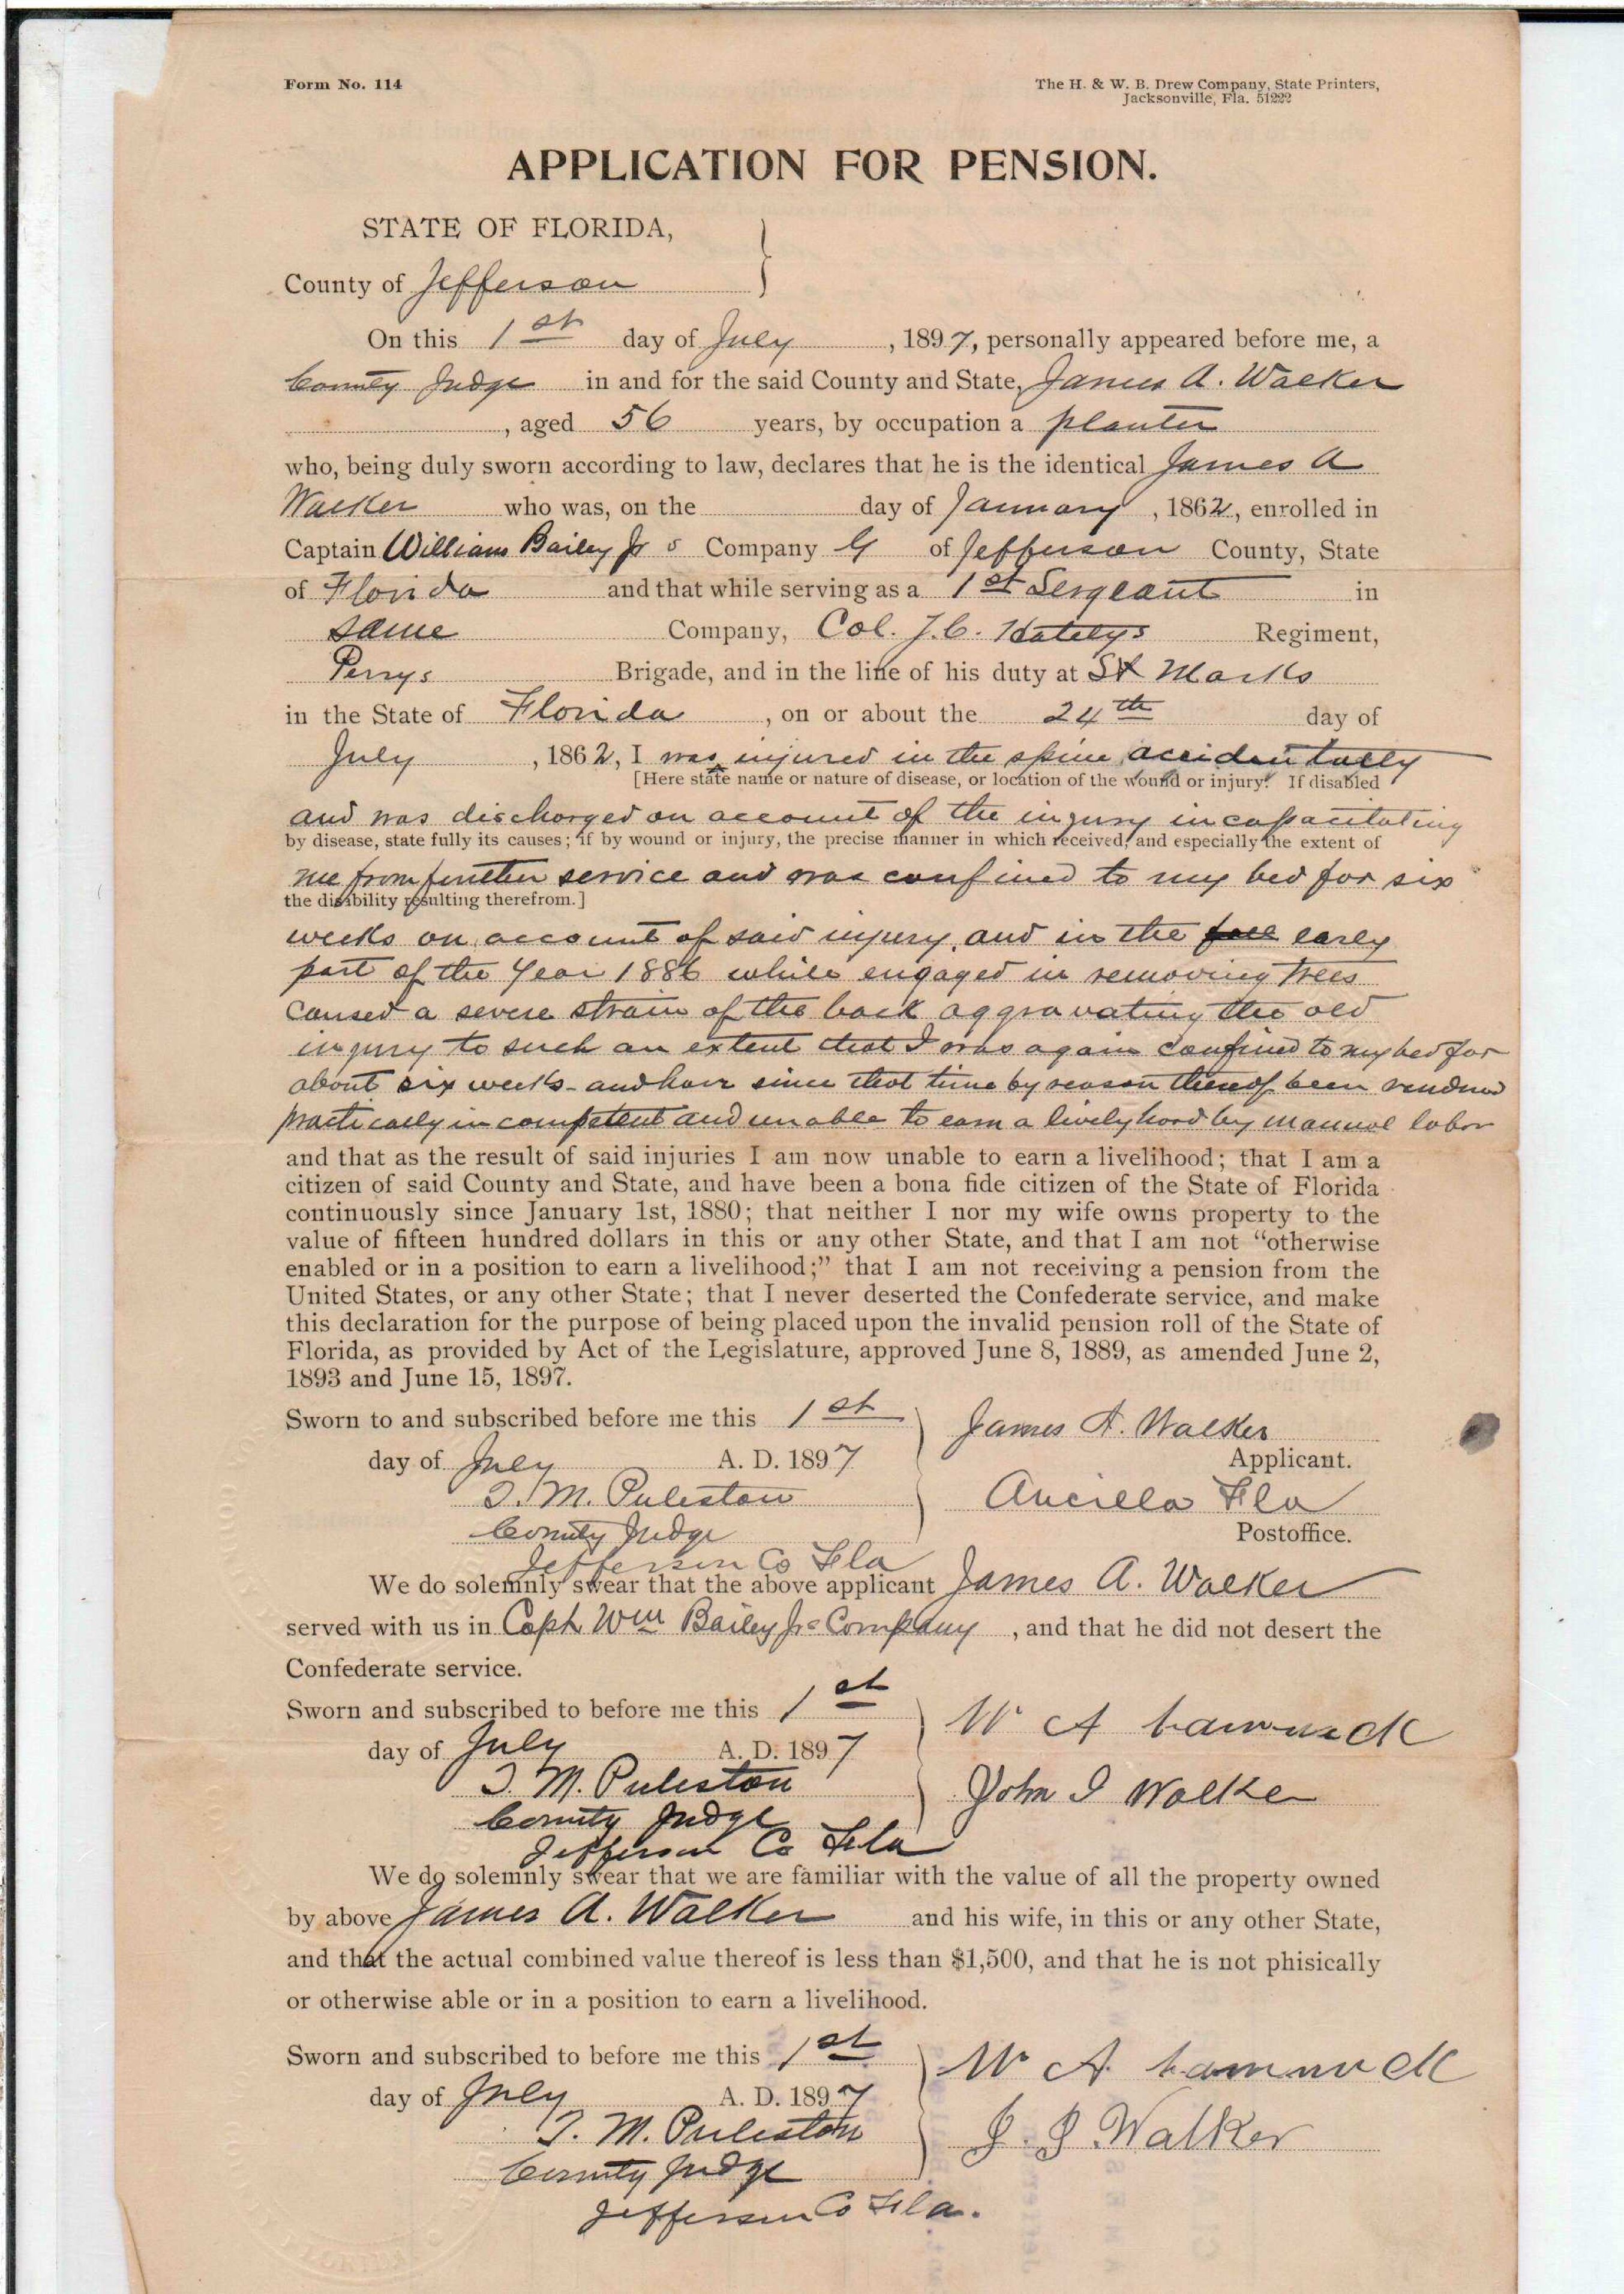 Form No. 114
The H. & W. B. Drew Company, State Printers,
Jacksonville, Fla. 51222
APPLICATION FOR PENSION.
STATE OF FLORIDA,
County of Jefferson
On this 1st day of July, 1897, personally appeared before me, a
County Judge in and for the said County and State, James A. Walker
, aged 56 years, by occupation a planter
who, being duly sworn according to law, declares that he is the identical James A
Walker who was, on the day of January, 1862, enrolled in
Captain William Bailey Jr s Company G of Jefferson County, State
of Florida and that while serving as a 1st Sergeant in
same Company, Col. J. C. Regiment,
Perrys Brigade, and in the line of his duty at St Marks
in the State of Florida, on or about the 24th day of
July, 1862, I was injured in the spine accidentally
[Here state name or nature of disease, or location of the wound or injury. If disabled
and was discharged on account of the injury incapacitating
by disease, state fully its causes; if by wound or injury, the precise manner in which received, and especially the extent of
me from further service and was confined to my bed for six
the disability resulting therefrom.]
weeks on account of said injury, and in the fall early
part of the Year 1886 while engaged in removing trees
caused a severe strain of the back aggravating the old
injury to such an extent that I was again confined to my bed for
about six weeks - and have since that time by reason thereof been rendered
practically incompetent and unable to earn a livelyhood by manual labor
and that as the result of said injuries I am now unable to earn a livelihood; that I am a
citizen of said County and State, and have been a bona fide citizen of the State of Florida
continuously since January 1st, 1880; that neither I nor my wife owns property to the
value of fifteen hundred dollars in this or any other State, and that I am not "otherwise
enabled or in a position to earn a livelihood;" that I am not receiving a pension from the
United States, or any other State; that I never deserted the Confederate service, and make
this declaration for the purpose of being placed upon the invalid pension roll of the State of
Florida, as provided by Act of the Legislature, approved June 8, 1889, as amended June 2,
1893 and June 15, 1897.
Sworn to and subscribed before me this 1st
James A. Walker
Applicant.
day of July A. D. 1897
T. M. Puleston
Aucilla Fla
County Judge
Postoffice.
Jefferson Co Fla
We do solemnly swear that the above applicant James A. Walker
served with us in Capt Wm Bailey Jrs Company, and that he did not desert the
Confederate service.
Sworn and subscribed to before me this 1st
W A
day of July A. D. 1897
T. M. Puleston
John I Walker
County Judge
Jefferson Co Fla
We do solemnly swear that we are familiar with the value of all the property owned
by above James A. Walker and his wife, in this or any other State,
and that the actual combined value thereof is less than $1,500, and that he is not phisically
or otherwise able or in a position to earn a livelihood.
Sworn and subscribed to before me this 1st
W A
day of July A. D. 1897
T. M. Puleston
J. I Walker
County Judge
Jefferson Co Fla.